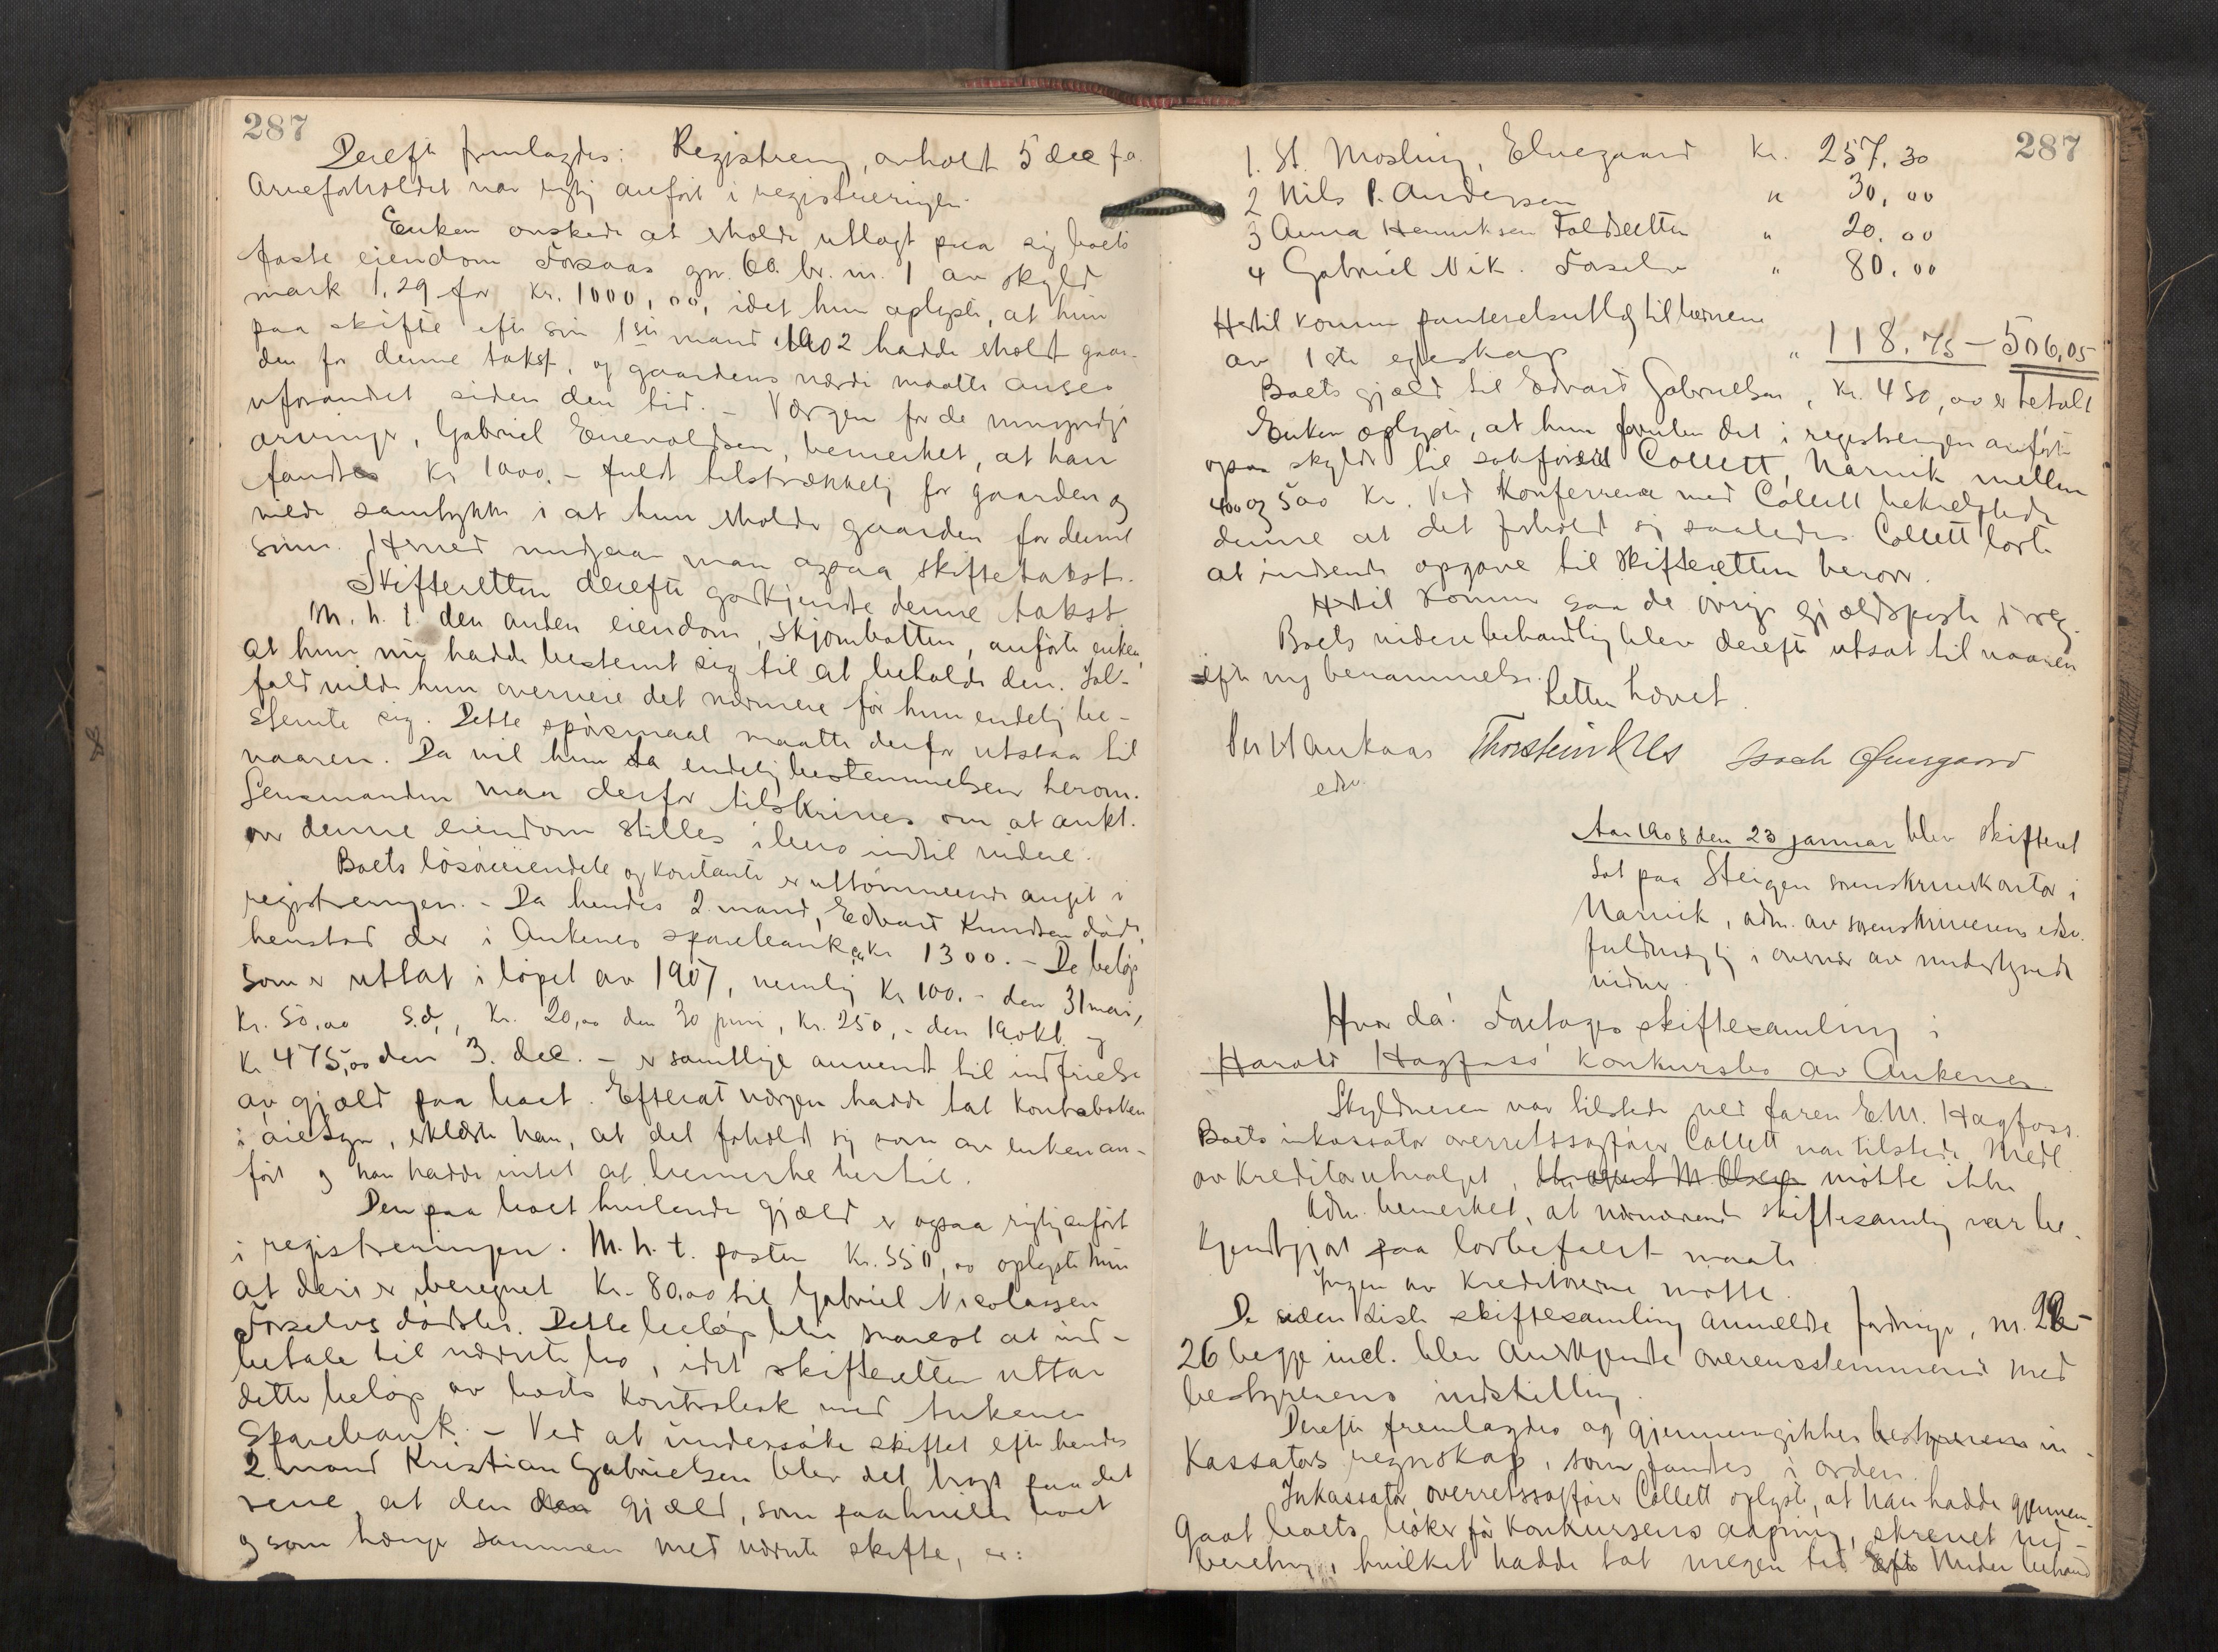 287
Derefter fremlagdes: Registrering, avholdt 5 dec f.a.
Arveforholdet var rigtig anført i registreringen.
Enken ønskede at erholde utlagt paa sig boets
faste eiendom Forsaas gnr. 60. br. nr. 1 av skyld
mark 1,29 for Kr. 1000,00, idet hun oplyste, at hun
paa skifte efter sin 1ste mand i 1902 hadde erholdt gaar-
den for denne takst, og gaardens værdi maatte anses
uforandret siden den tid. – Værgen for de umyndige
arvinger, Gabriel Enevoldsen, bemerket, at han
fandt Kr 1000.– fuldt tilstrækkelig for gaarden og
vilde samtykke i at hun erholdt gaarden for denne
sum. Herved undgaar man ogsaa skiftetakst.
Skifteretten derefter godkjendte denne takst.
M. h. t. den anden eiendom, Skjombotten, anførte enken,
at hun nu hadde bestemt sig til at beholde den. Ialf-
fald vilde hun overveie det nærmere før hun endelig be-
stemte sig. Dette spørsmaal maatte derfor utstaa til
vaaren. Da vil hun ta endelig bestemmelse herom.
Lensmanden maa derfor tilskrives om at aukt.
over denne eiendom stilles i bero indtil videre.
Boets løsøreiendele og kontanter er uttømmende angit i
registreringen. – Da hendes 2. mand, Edvart Knudsen døde,
henstod der i Ankenes sparebank ca Kr 1300.– De beløp
som er uttat i løpet av 1907, nemlig Kr 100.– den 31 mai,
Kr. 50,00 s.d., Kr. 20,00 den 30 juni, Kr. 250,– den 19 okt. og
Kr. 475,00 den 3. dec. – er samtlige anvendt til indfrielse
av gjæld paa boet. Efterat værgen hadde tat kontraboken
i øiesyn, erklærte han, at det forholdt sig som av enken an-
ført og han hadde intet at bemerke hertil.
Den paa boet hvilende gjæld er ogsaa rigtig anført
i registreringen. M. h. t. posten Kr. 550,00 oplyste hun
at deri er beregnet Kr. 80,00 til Gabriel Nicolassen
Forselvs dødsbo. Dette beløp blir snarest at ind-
betale til nævnte bo, idet skifteretten uttar
dette beløp av boets kontrabok med Ankenes
Sparebank. – Ved at undersøke skiftet efter hendes
2. mand Kristian Gabrielsen blev det bragt paa det
rene, at den den gjæld, som paahviler boet
og som hænger sammen med nævnte skifte, er:
287
1. St. Mosling, Elvegaard Kr. 257,30
2 Nils P. Andersen " 30,00
3 Anna Henriksen Foldsletten " 20,00
4 Gabriel Nik. Forselv " 80,00
Hertil kommer panterelsutlæg til børnene
av 1ste egteskap " 118,75 – 506,05
Boets gjæld til Edvard Gabrielsen, Kr. 450,00 er betalt
Enken oplyste, at hun foruten det i registreringen anførte
ogsaa skyldte til sakfører Collett, Narvik mellem
400 og 500 Kr. Ved konferrence med Collett bekræftede
denne at det forholdt sig saaledes. Collett lovte
at indsende opgave til skifteretten herover.
Hertil kommer saa de øvrige gjældsposter i reg.
Boets videre behandling blev derefter utsat til vaaren
efter ny berammelse.
Retten hævet.
Per Haukaas Thorstein Isach Elvegaard
edsv.
Aar 1908 den 23 januar blev skifteret
sat paa Steigen sorenskriverkontor i
Narvik, adm. av sorenskriverens edsv.
fuldmægtig i overvær av undertegnede
vidner.
Hvor da: Foretages skiftesamling i
Harald Hagfoss' konkursbo av Ankenes
Skyldneren var tilstede ved faren E. M. Hagfoss.
Boets inkassator overretssagfører Collett var tilstede. Medl.
av kreditorutvalget, M. Olsen møtte ikke
Adm. bemerket, at nærværende skiftesamling var be-
kjendtgjort paa lovbefalet maate.
Ingen av kreditorerne møtte.
De siden sidste skiftesamling anmeldte fordringer, nr. 22–
26 begge incl. blev anerkjendte overensstemmende med
bestyrerens indstilling.
Derefter fremlagdes og gjennemgikkes bestyrerens in-
kassators regnskap, som fandtes i orden.
Inkassator, overretssagfører Collett oplyste, at han hadde gjennem-
gaat boets bøker før konkursens aapning, skrevet ind-
beretning, hvilket hadde tat megen tid Efter Under behand